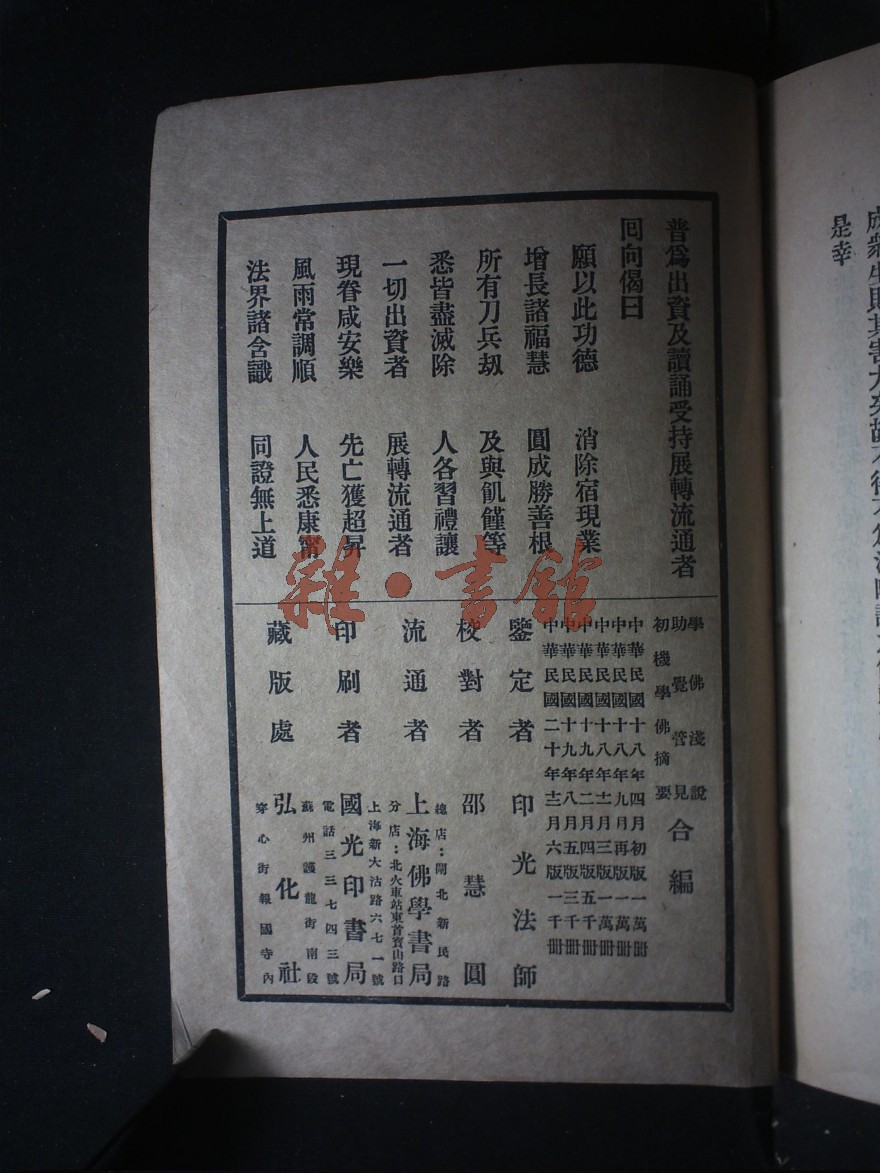 普爲出資及讀誦受持展轉流通者
囘向偈曰
願以此功德 消除宿現業
增長諸福慧 圓成勝善根
所有刀兵劫 及與飢饉等
悉皆盡滅除 人各習禮讓
一切出資者 展轉流通者
現眷咸安樂 先亡獲超昇
風雨常調順 人民悉康甯
法界諸含識 同證無上道
學佛淺說
助覺管見
初機學佛摘要
合編
中華民國十八年四月初版一萬冊
中華民國十八年九月再版一萬冊
中華民國十八年十二月三版一萬冊
中華民國十九年二月四版五千冊
中華民國十九年八月五版三千冊
中華民國二十年十二月六版一千冊
鑒定者 印光法師
校對者 邵慧圓
總店：閘北新民路
流通者 上海佛學書局
分店：北火車站東首寶山路口
上海新大沽路六七一號
印刷者 國光印書局
電話三三七四三號
蘇州護龍街南段
藏版處 弘化社
穿心街報國寺內
雜·書館
是幸